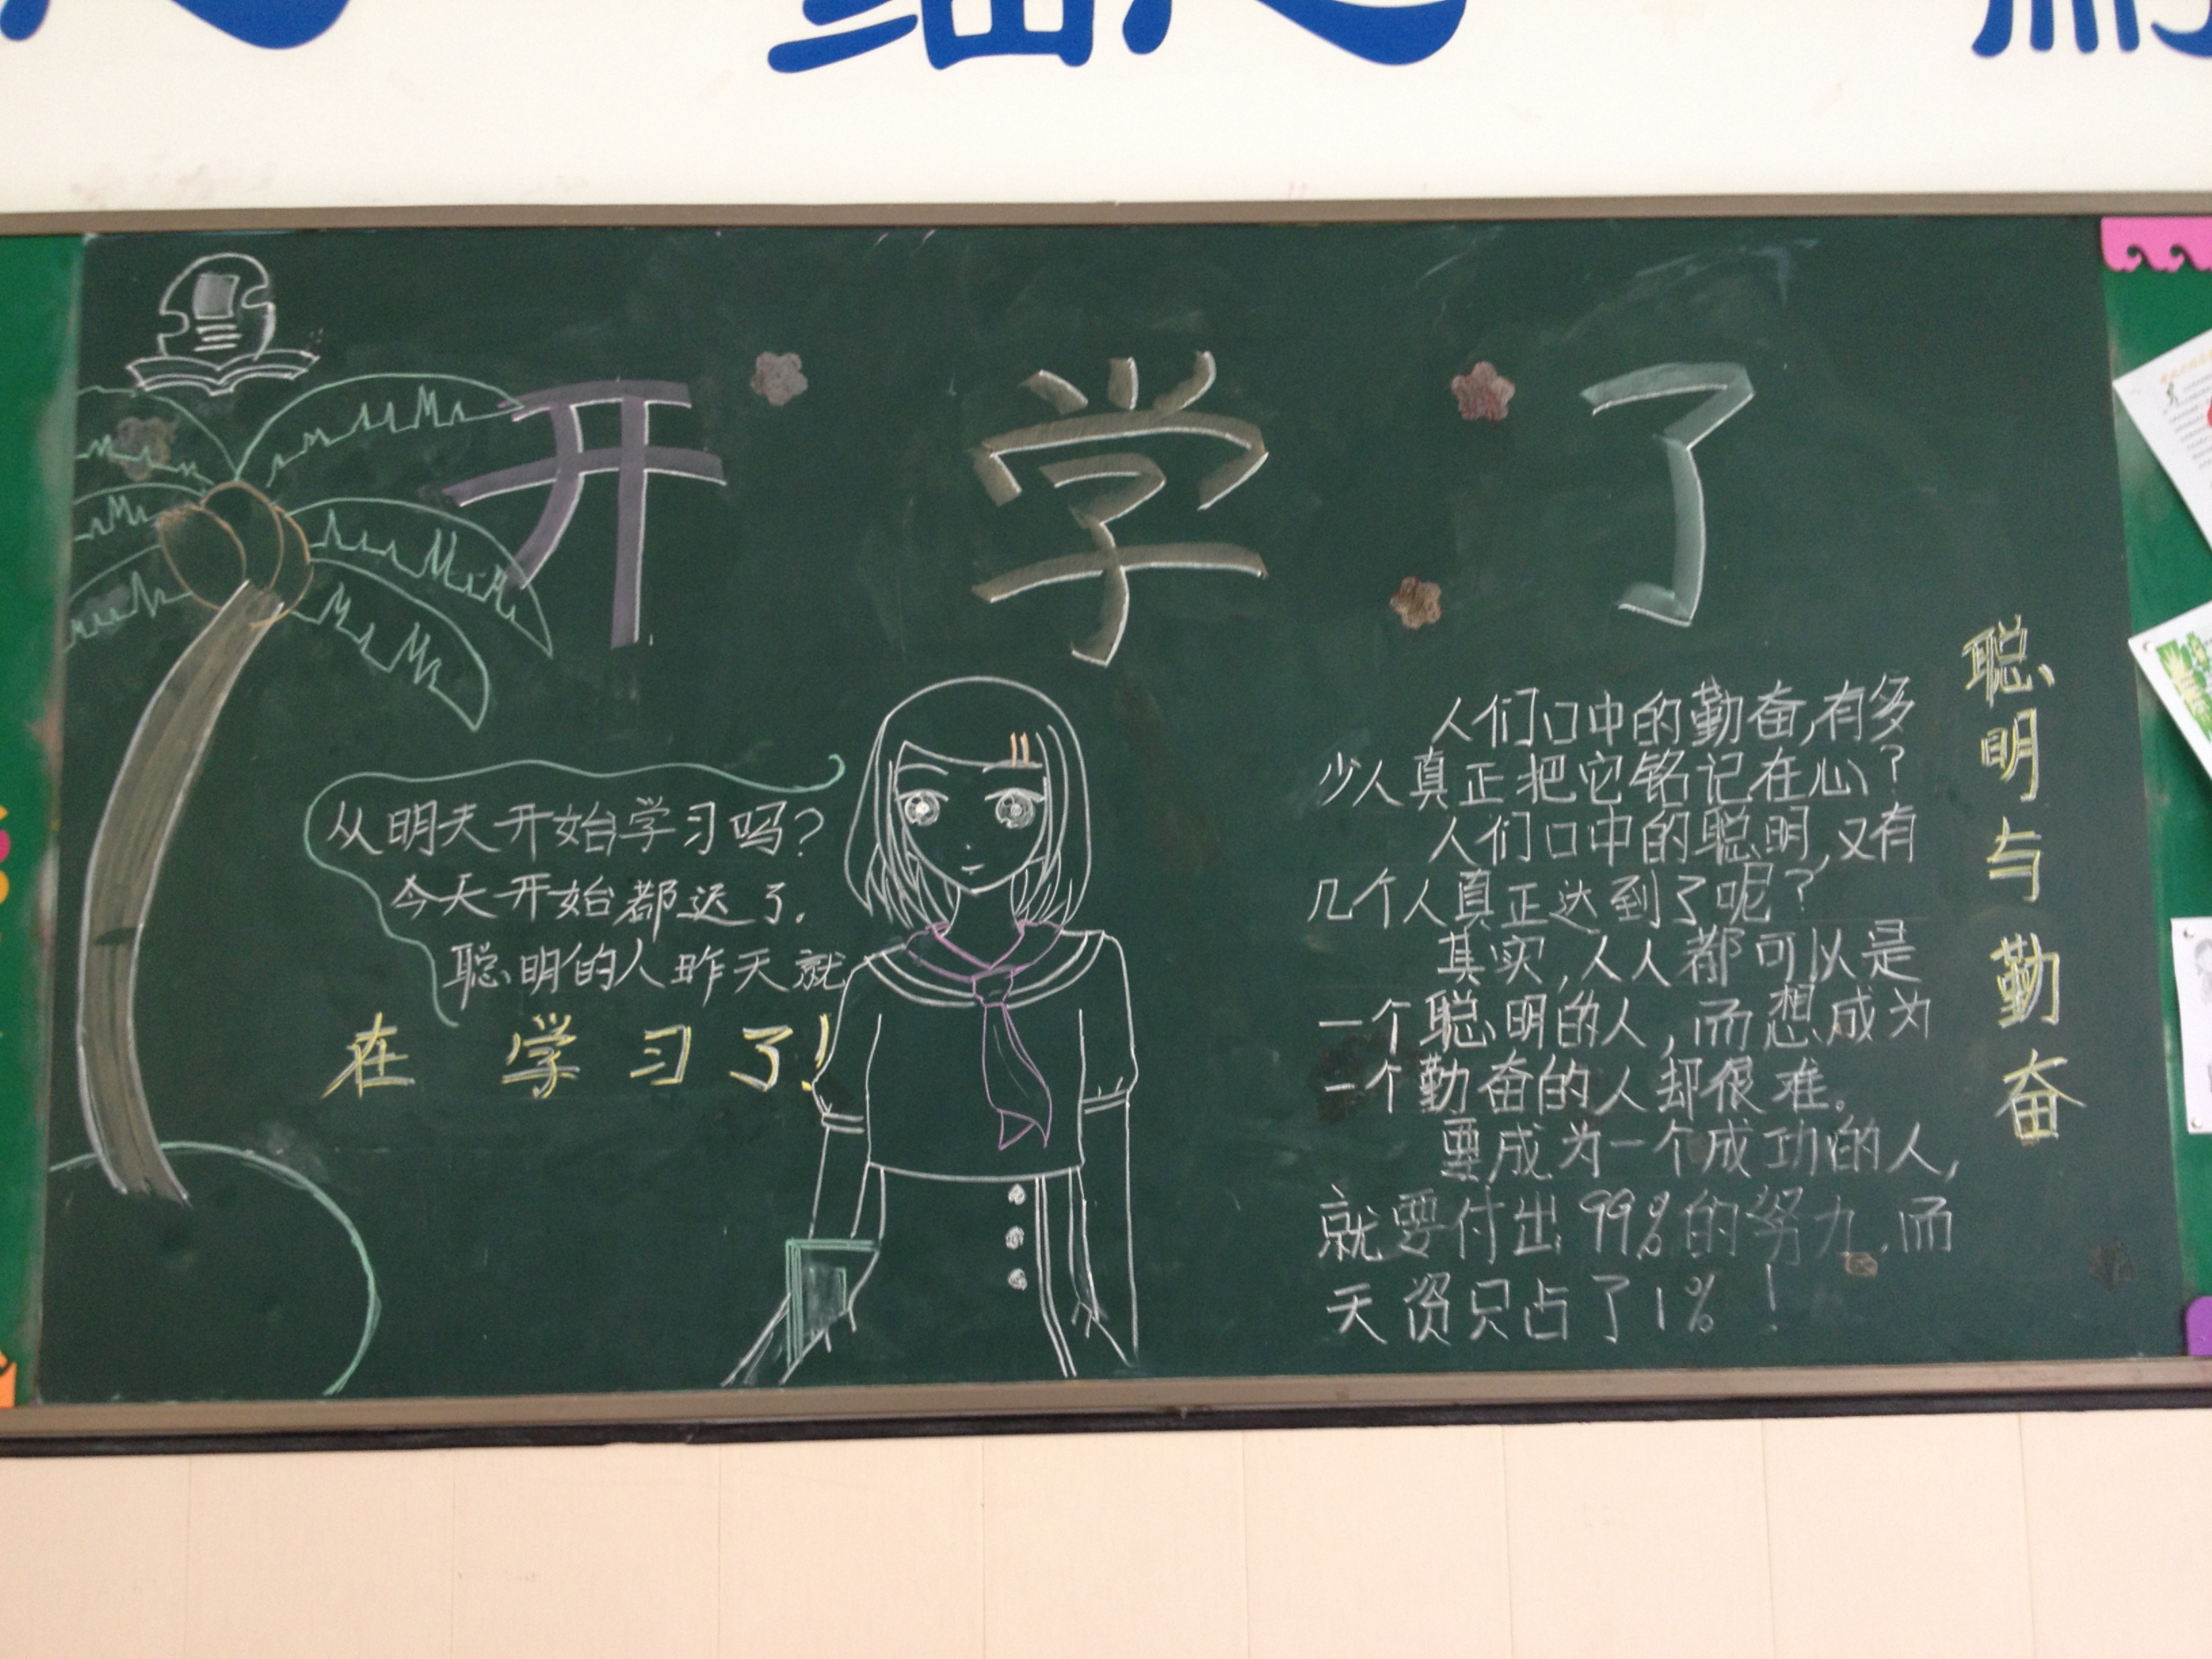 开学了
从明天开始学习吗?
今天开始都迟了.
聪明的人昨天就
在学习了!
聪明与勤奋
人们口中的勤奋,有多
少人真正把它铭记在心?
人们口中的聪明,又有
几个人真正达到了呢?
其实,人人都可以是
一个聪明的人,而想成为
一个勤奋的人却很难。
要成为一个成功的人,
就要付出99%的努力,而
天资只占了1%!